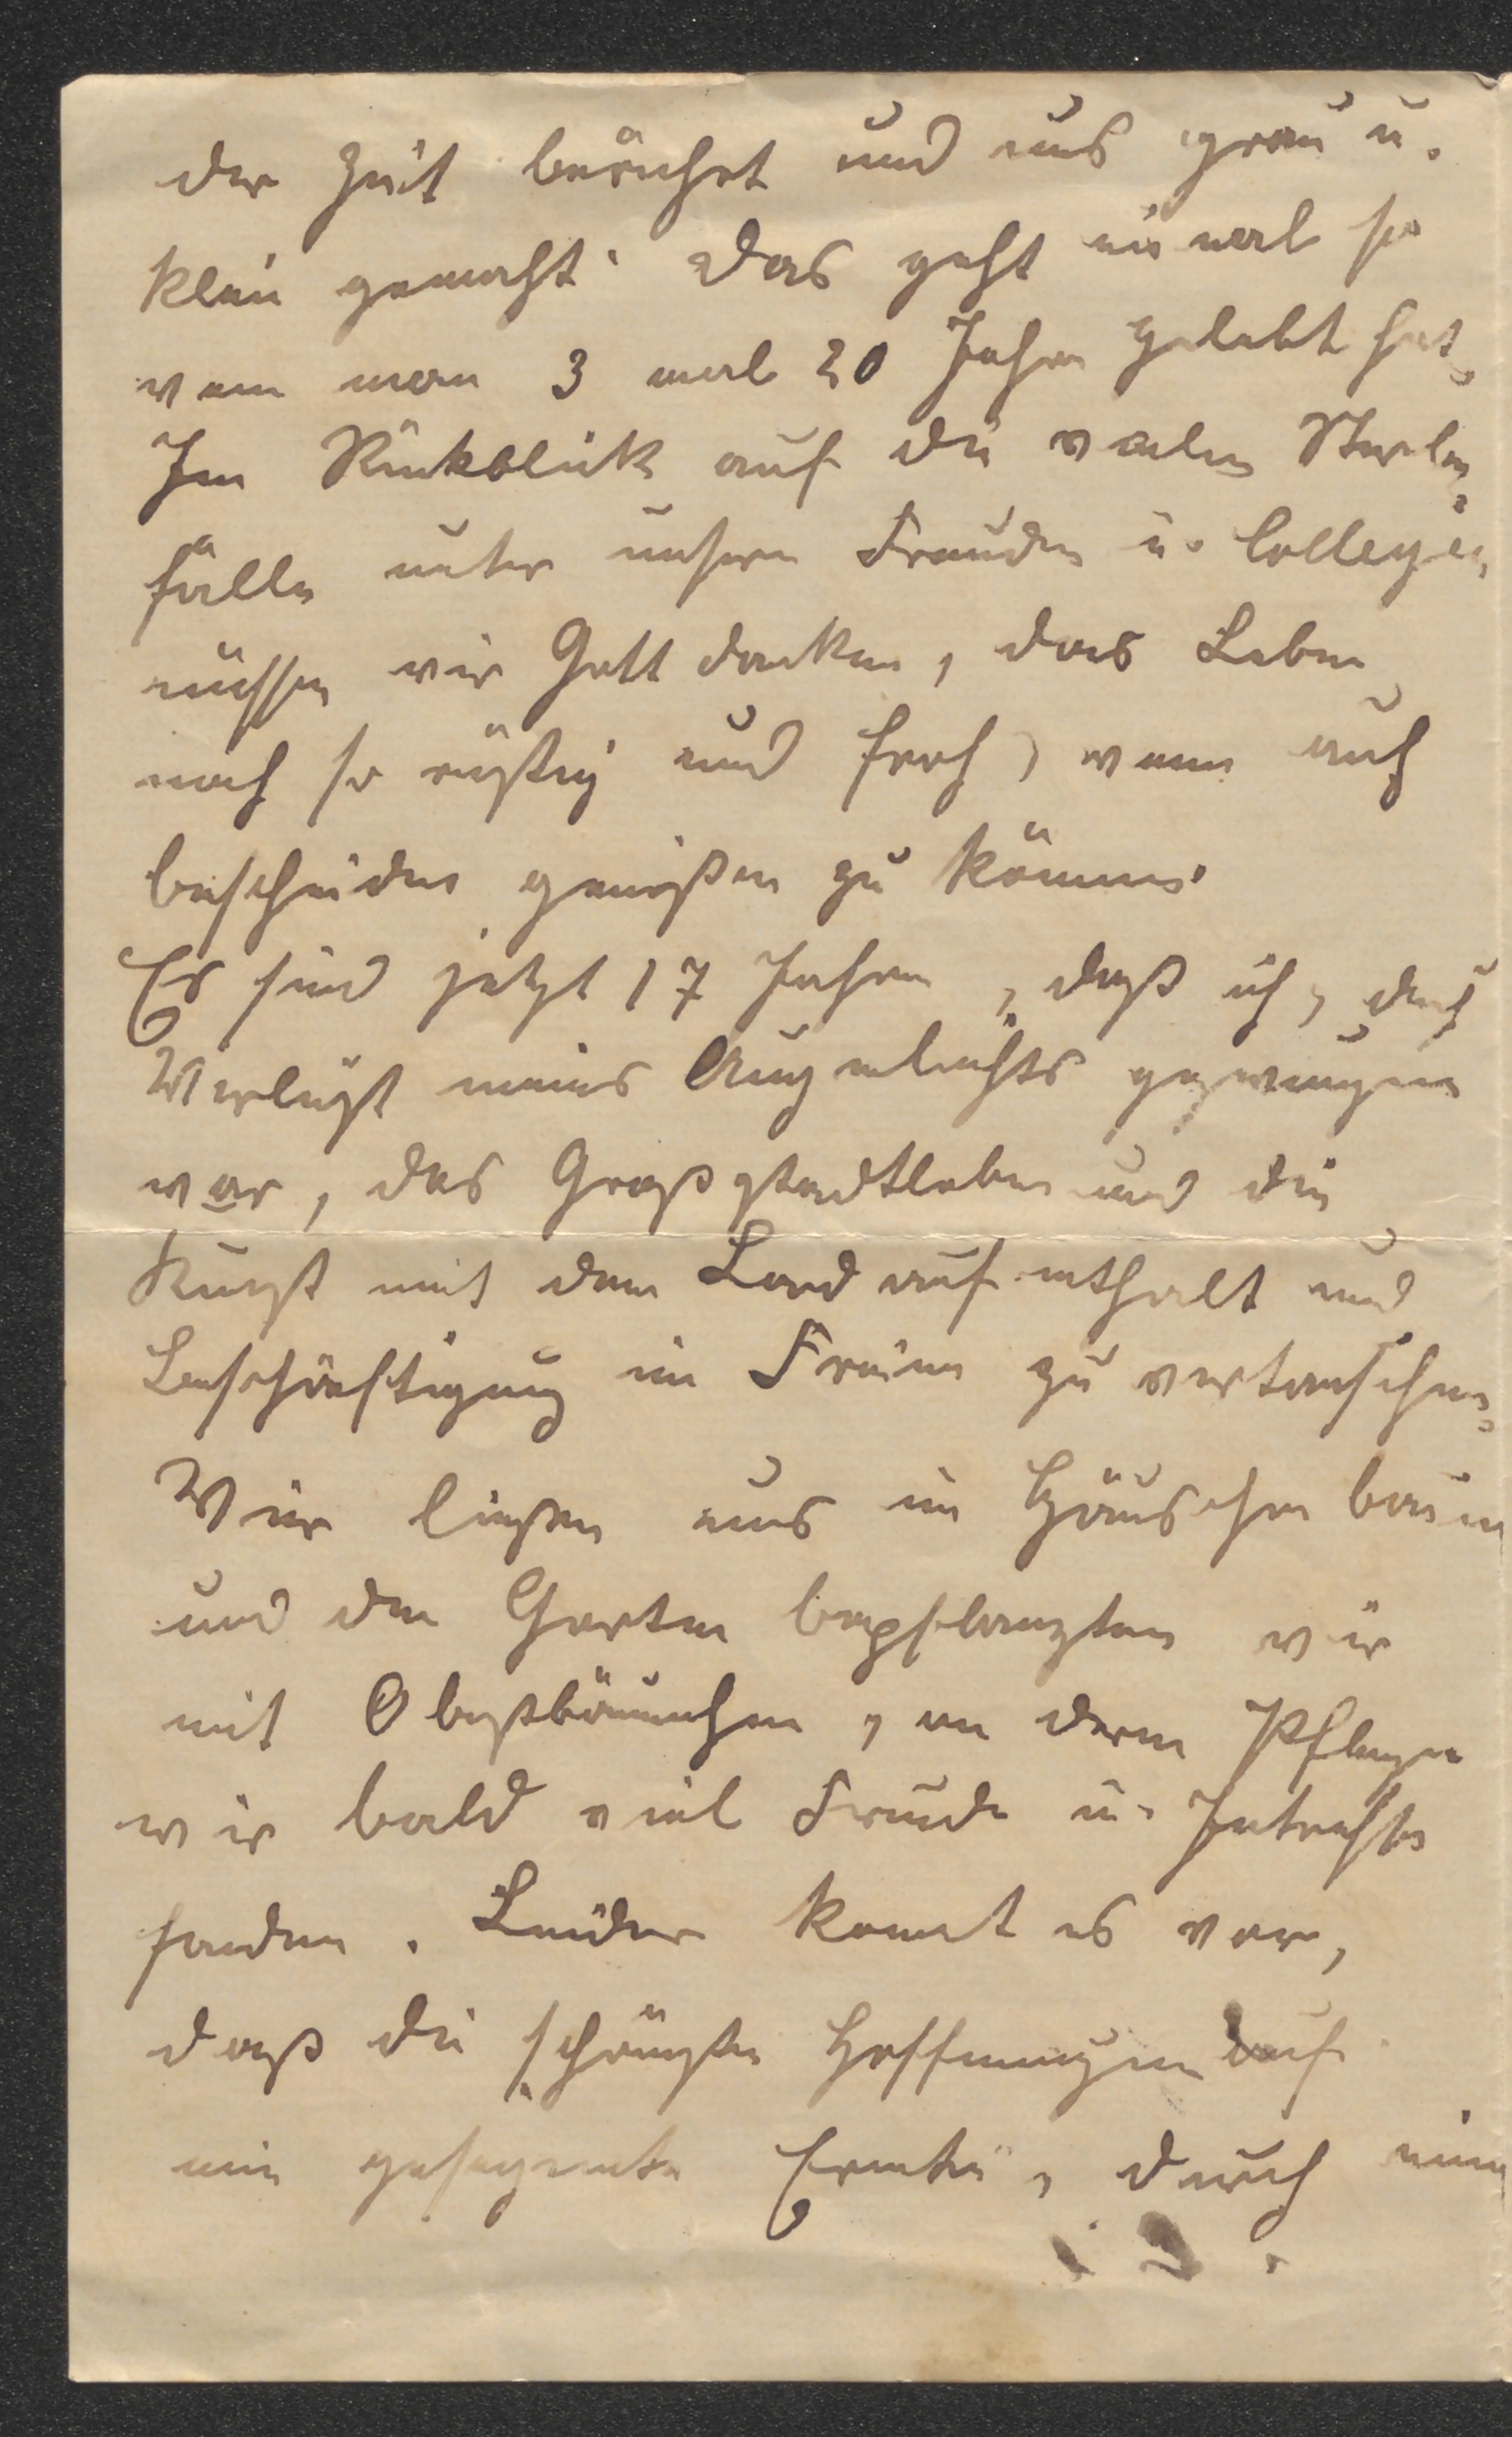 der Zeit berührt und uns grau u.
klein gemacht. Das geht einmal so
wenn man 3 mal 20 Jahre gelebt hat,
Im Rückblick auf die vielen Sterbe
fälle unter unsern Freunden u. Collegen
müssen wir Gott danken, das Leben
noch so rüstig und froh, wenn auch
bescheiden genießen zu können.
Es sind jetzt 17 Jahre, daß ich, durch
Verlust meines Augenlichts gezwungen
war, das Großstadtleben und die
Kunst mit dem Landaufenthalt und
Beschäftigung im Freien zu vertauschen.
Wir ließen uns ein Häuschen bauen
und den Garten bepflanzten wir
mit Obstbäumchen, an deren Pflege
wir bald viel Freude u. Intresse
fanden. Leider komt es vor,
daß die schönsten Hoffnungen auf
eine gesegnete Ernte, durch einen